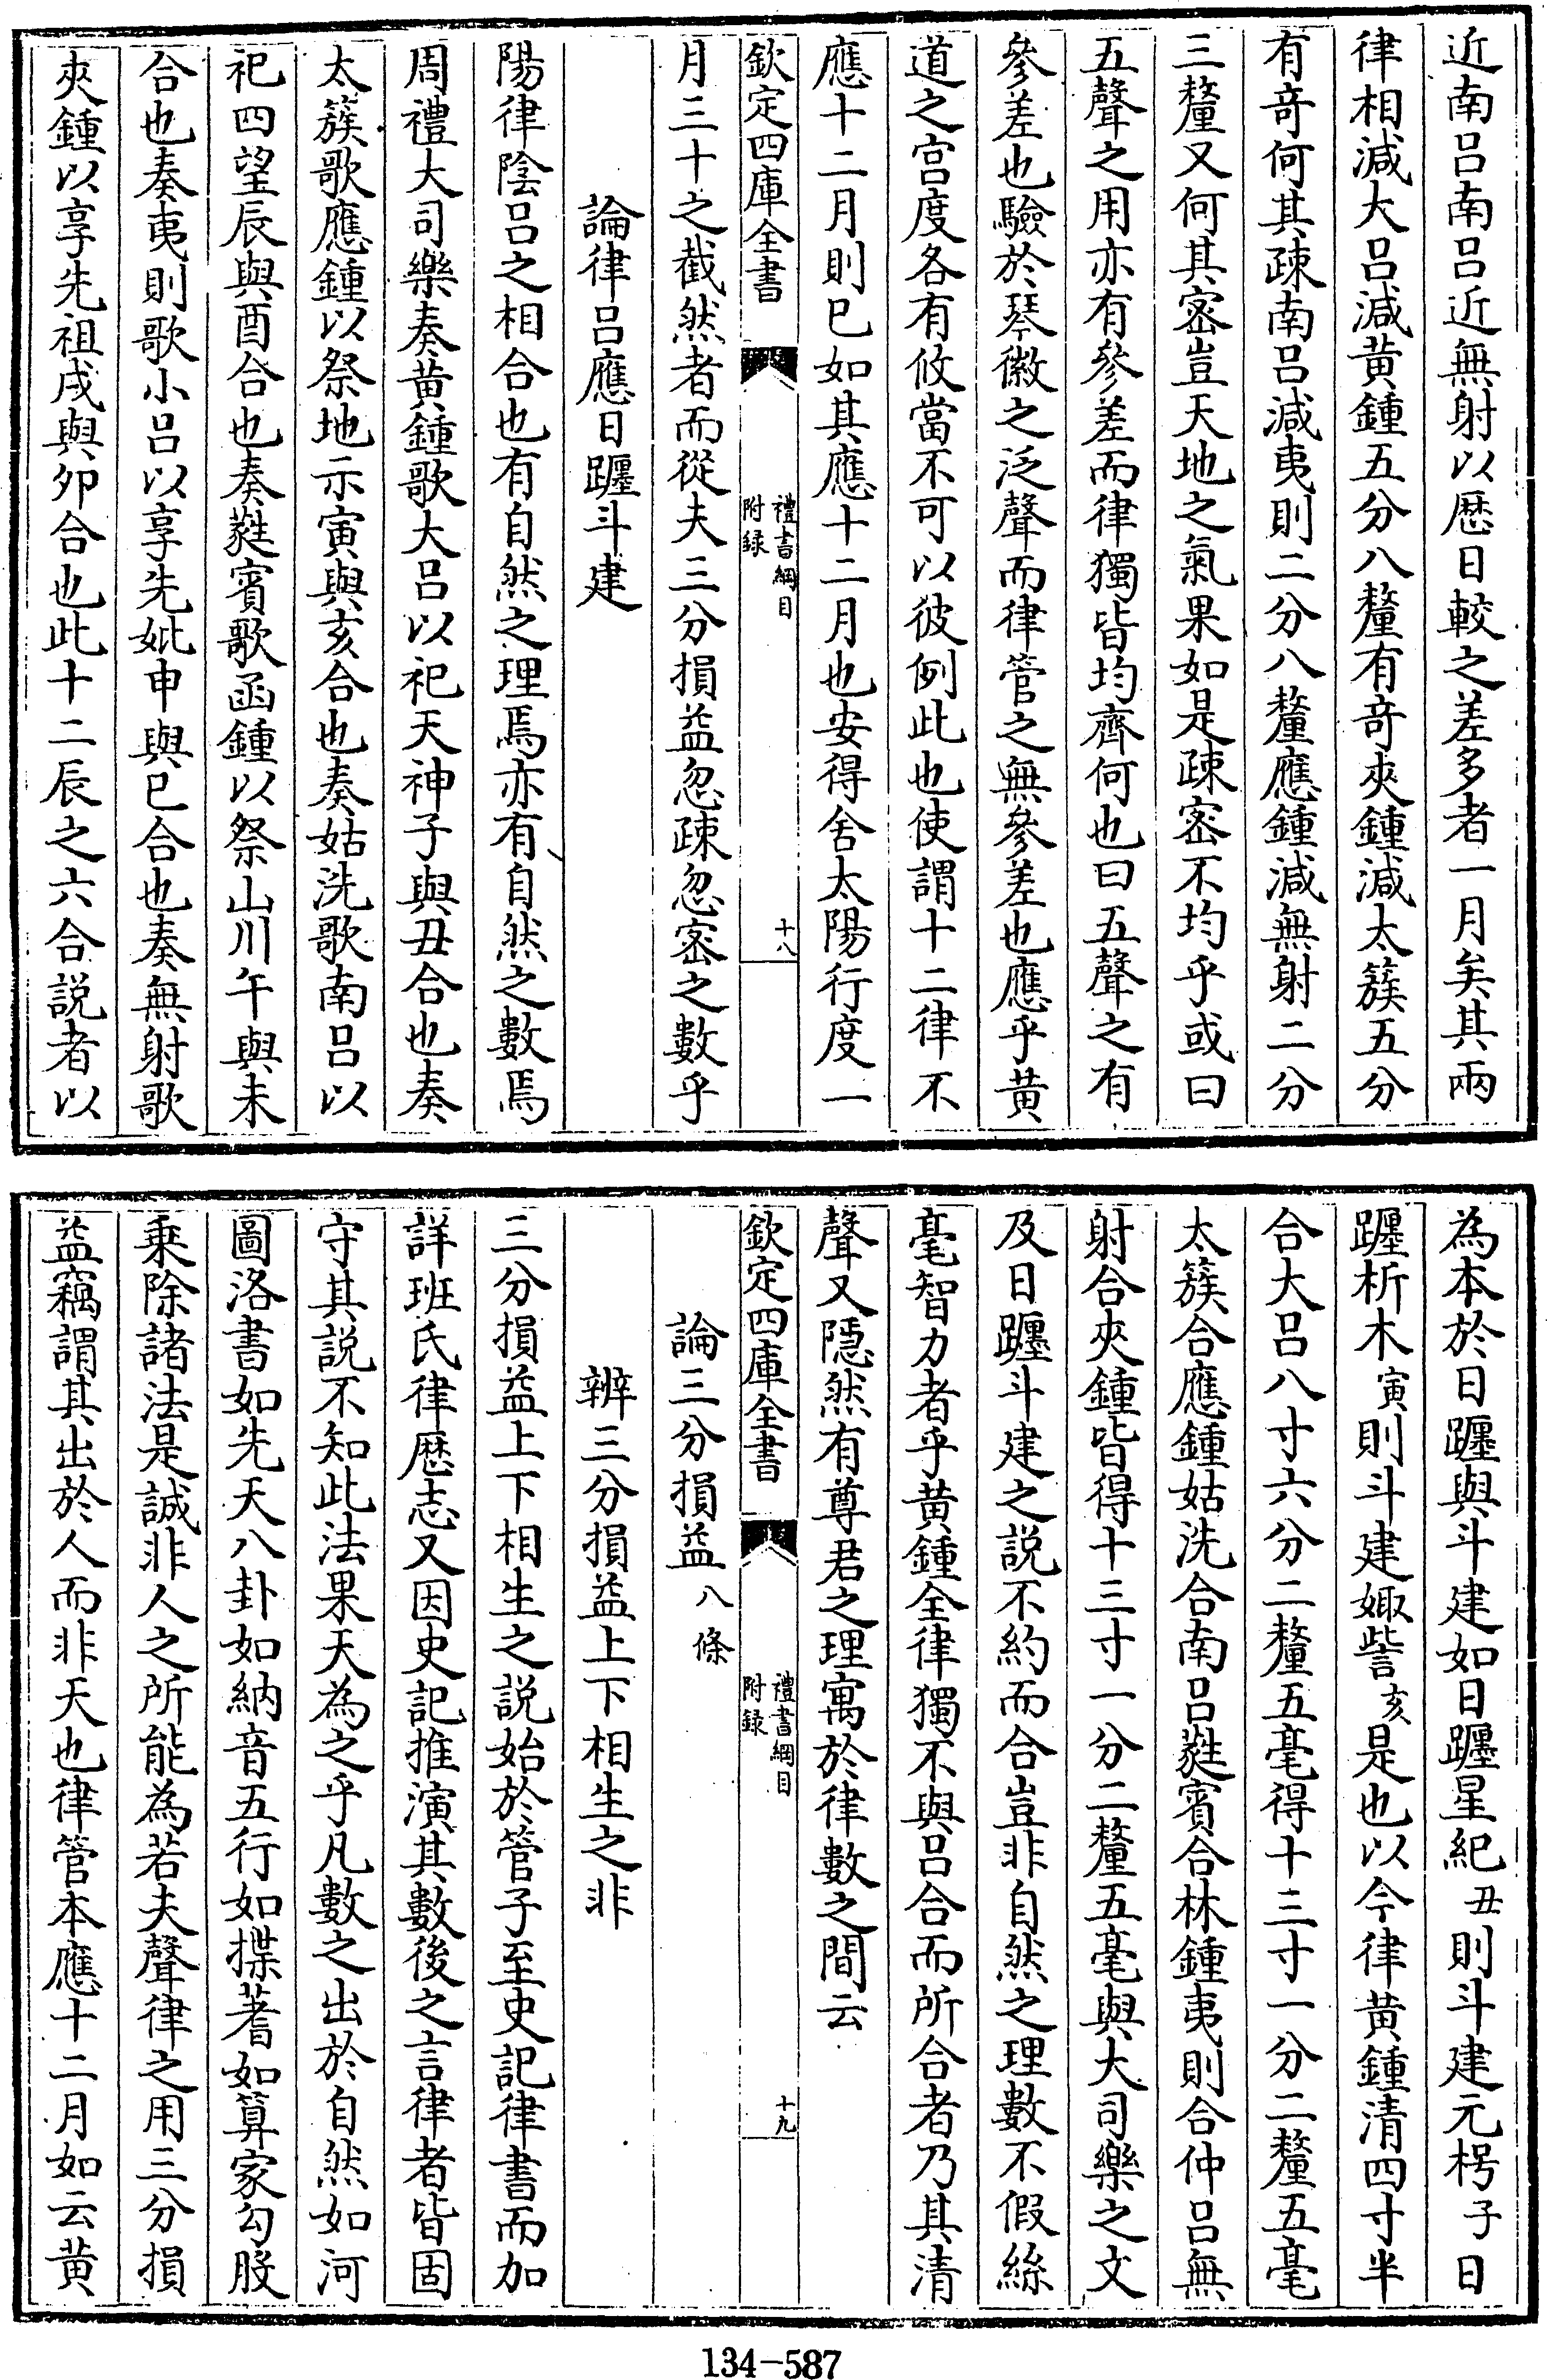 近南呂南呂近無射以厯日較之差多者一月矣其兩
律相減大呂減黄鍾五分八釐有竒夾鍾減太簇五分
有竒何其疎南呂減夷則二分八釐應鍾減無射二分
三釐又何其密豈天地之氣果如是疎密不均乎或曰
五聲之用亦有參差而律獨皆均齊何也曰五聲之有
參差也驗於琴徽之泛聲而律管之無參差也應乎黄
道之宫度各有攸當不可以彼例此也使謂十二律不
應十二月則已如其應十二月也安得舍太陽行度一
欽定四庫全書
禮書綱目
附録
十八
月三十之截然者而從夫三分損益忽疎忽密之數乎
論律呂應日躔斗建
陽律陰呂之相合也有自然之理焉亦有自然之數焉
周禮大司樂奏黄鍾歌大呂以祀天神子與丑合也奏
太簇歌應鍾以祭地示寅與亥合也奏姑洗歌南呂以
祀四望辰與酉合也奏蕤賓歌函鍾以祭山川午與未
合也奏夷則歌小呂以享先妣申與巳合也奏無射歌
夾鍾以享先祖戌與夘合也此十二辰之六合説者以
為本於日躔與斗建如日躔星紀丑則斗建元枵子日
躔析木寅則斗建娵訾亥是也以今律黄鍾清四寸半
合大呂八寸六分二釐五毫得十三寸一分二釐五毫
太簇合應鍾姑洗合南呂蕤賓合林鍾夷則合仲呂無
射合夾鍾皆得十三寸一分二釐五毫與大司樂之文
及日躔斗建之説不約而合豈非自然之理數不假絲
毫智力者乎黄鍾全律獨不與呂合而所合者乃其清
聲又隱然有尊君之理寓於律數之間云
欽定四庫全書
禮書綱目
附録
十九
論三分損益八條
辨三分損益上下相生之非
三分損益上下相生之説始於管子至史記律書而加
詳班氏律厯志又因史記推演其數後之言律者皆固
守其説不知此法果天為之乎凡數之出於自然如河
圖洛書如先天八卦如納音五行如揲蓍如算家勾股
乗除諸法是誠非人之所能為若夫聲律之用三分損
益竊謂其出於人而非天也律管本應十二月如云黄
134-587